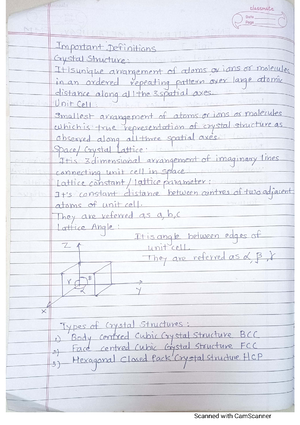 classmate
Date
Page
Important Definitions
Crystal Structure:
It is unique arrangement of atoms or ions or molecules
in an ordered repeating pattern over large atomic
distance along all the 3 spatial axes.
Unit Cell
Smallest arrangement of atoms or ions or molecules
which is true representation of crystal structure as
observed along all three spatial axes.
Space/ Crystal Lattice:
It is 3 dimensional arrangement of imaginary lines
connecting unit cell in space
Lattice constant / lattice parameter:
It's constant distance between centres of two adjacent
atoms of unit cell.
They are referred as a, b, c
Lattice Angle:
It is angle between edges of
unit cell.
They are referred as α, β, γ
Z
Y
X
Types of Crystal Structures:
1) Body Centred Cubic Crystal Structure BCC
2) Face centred Cubic Crystal Structure FCC
3) Hexagonal Closed Pack Crystal Structure HCP
Scanned with CamScanner